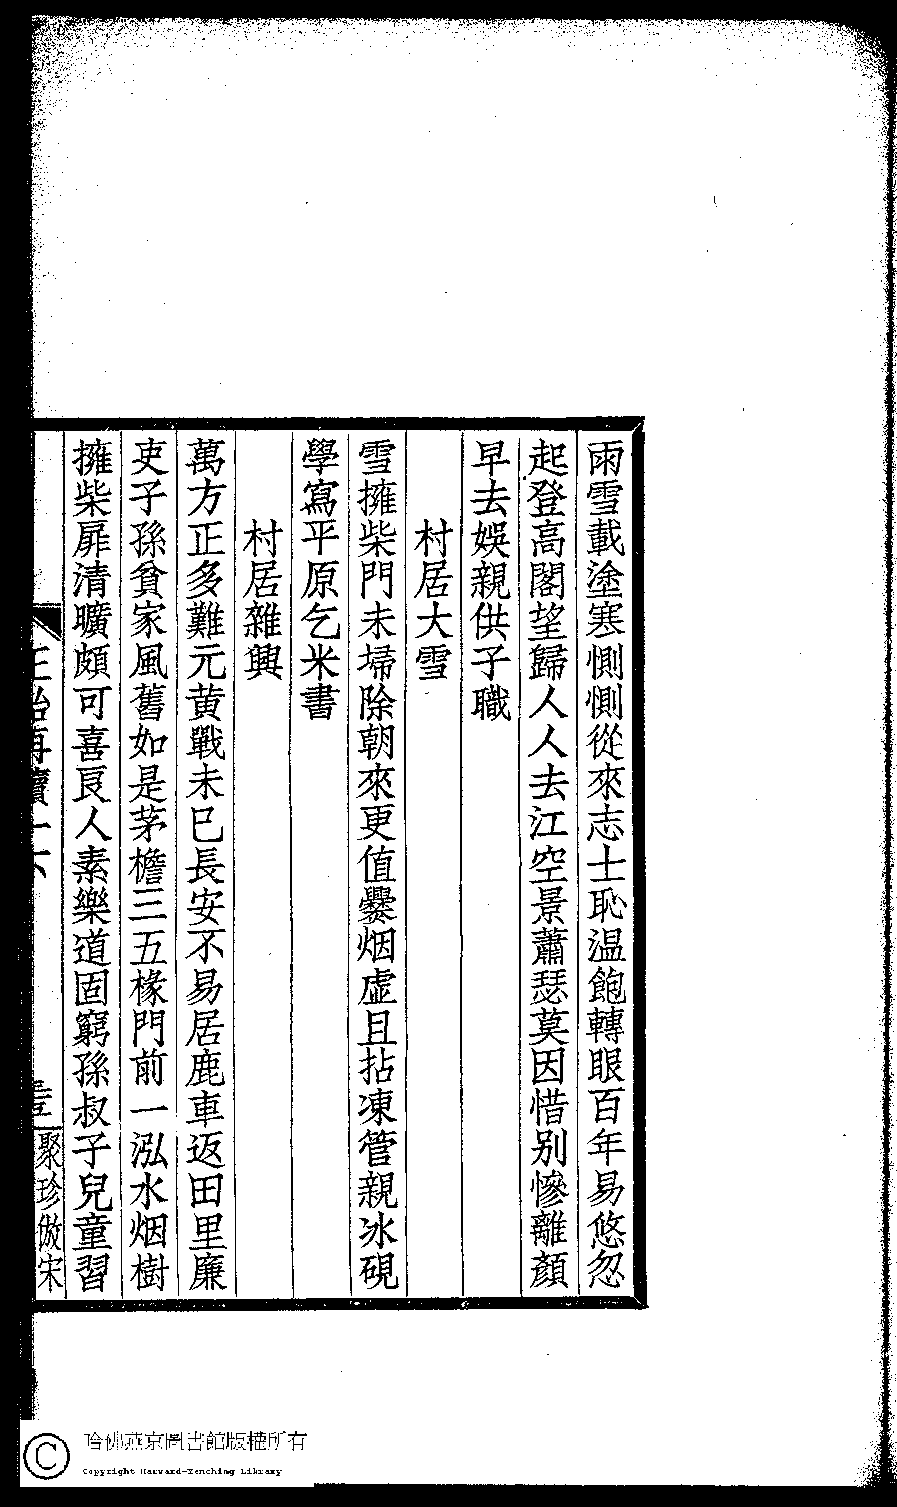 雨雪載塗寒惻惻從來志士恥温飽轉眼百年易悠忽
起登高閣望歸人人去江空景蕭瑟莫因惜别慘離顏
早去娛親供子職
村居大雪
雪擁柴門未埽除朝來更值爨烟虚且拈凍管親冰硯
學寫平原乞米書
村居雜興
萬方正多難元黄戰未已長安不易居鹿車返田里廉
吏子孫貧家風舊如是茅檐三五椽門前一泓水烟樹
擁柴扉清曠頗可喜良人素樂道固窮孫叔子兒童習
聚珍倣宋
哈佛燕京圖書館版權所有
Copyright Harvard-Yenching Library